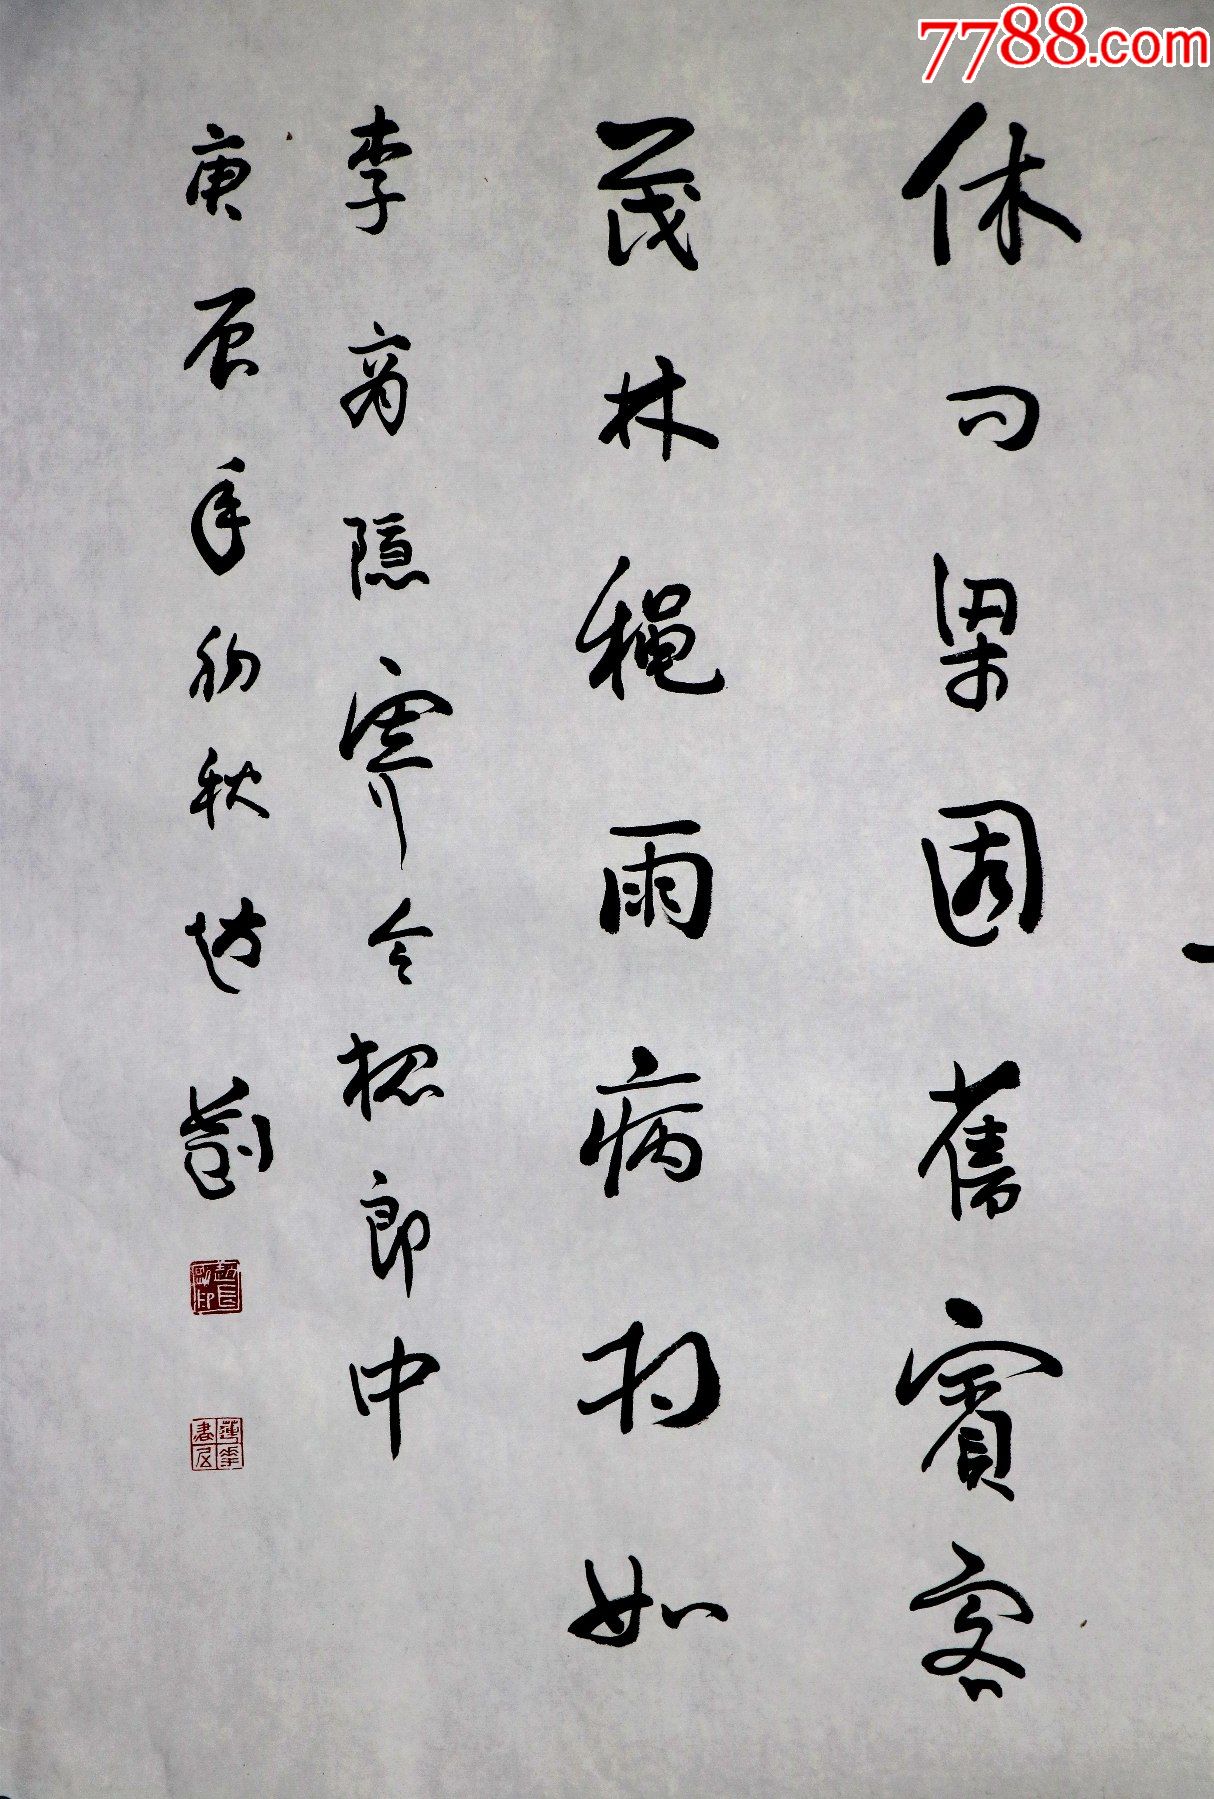 7788.com
休问梁园舊賓客
茂林秋雨病相如
李商隱寄令狐郎中
庚辰年初秋趙